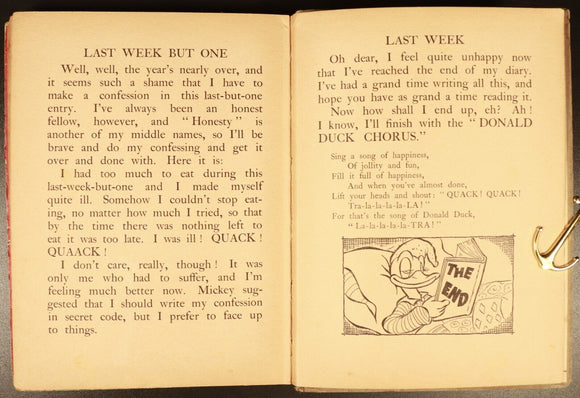 LAST WEEK BUT ONE
Well, well, the year's nearly over, and
it seems such a shame that I have to
make a confession in this last-but-one
entry. I've always been an honest
fellow, however, and "Honesty" is
another of my middle names, so I'll be
brave and do my confessing and get it
over and done with. Here it is:
I had too much to eat during this
last-week-but-one and I made myself
quite ill. Somehow I couldn't stop eat-
ing, no matter how much I tried, so that
by the time there was nothing left to
eat it was too late. I was ill! QUACK!
QUAACK!
I don't care, really, though! It was
only me who had to suffer, and I'm
feeling much better now. Mickey sug-
gested that I should write my confession
in secret code, but I prefer to face up
to things.
LAST WEEK
Oh dear, I feel quite unhappy now
that I've reached the end of my diary.
I've had a grand time writing all this, and
hope you have as grand a time reading it.
Now how shall I end up, eh? Ah!
I know, I'll finish with the "DONALD
DUCK CHORUS."
Sing a song of happiness,
Of jollity and fun,
Fill it full of happiness,
And when you've almost done,
Lift your heads and shout: "QUACK! QUACK!
Tra-la-la-la-la-LA!"
For that's the song of Donald Duck,
"La-la-la-la-la-TRA!"
THE
END